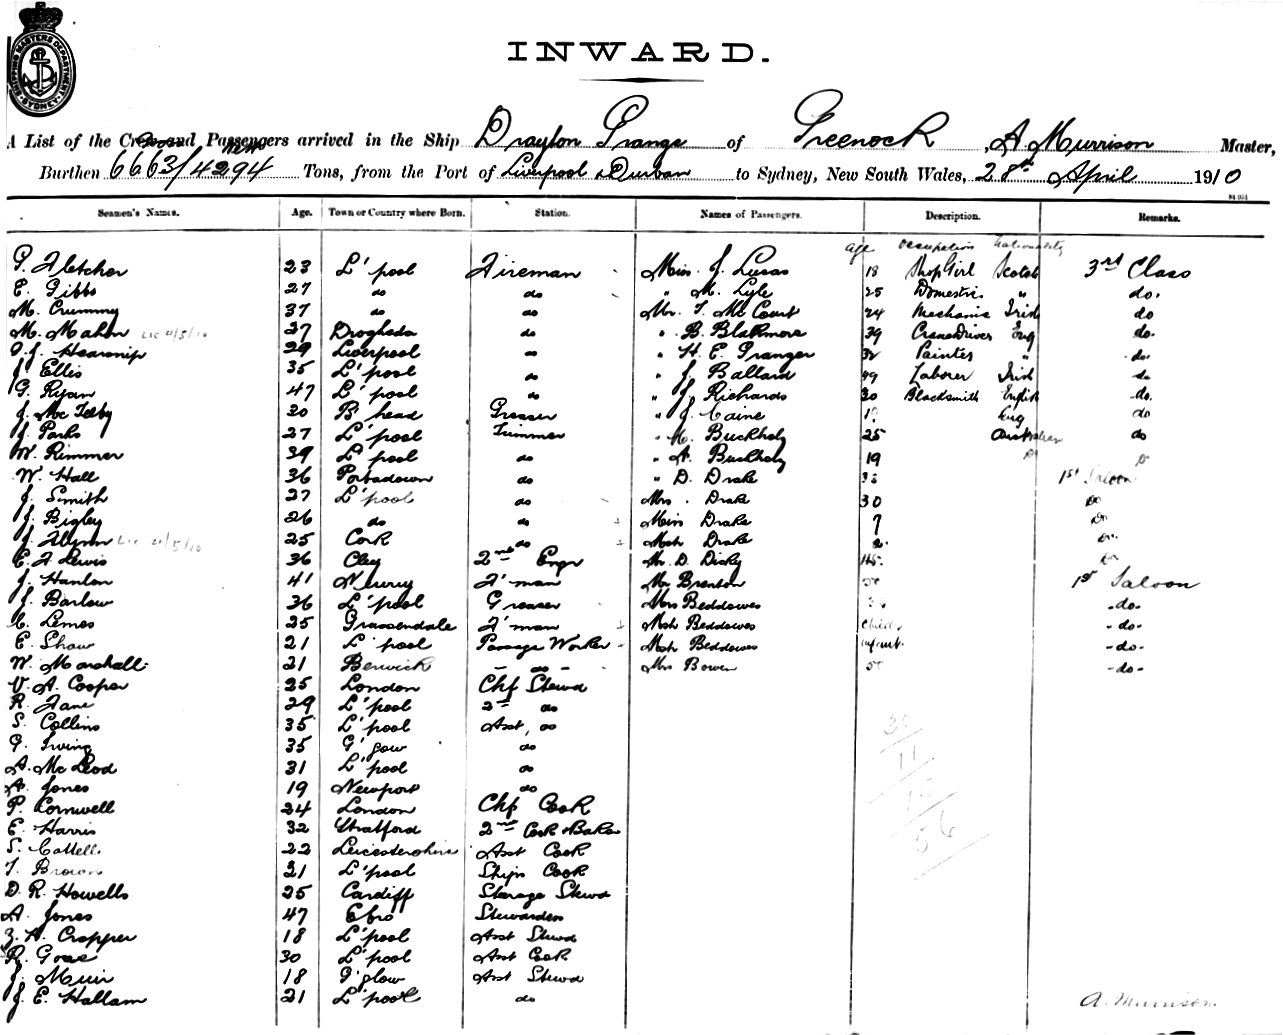 SHIPPING MASTERS DEPARTMENT
SYDNEY
INWARD.
A List of the Crew and Passengers arrived in the Ship Drayton Grange of Greenock, A Murrison Master,
Burthen 6663/4294 Tons, from the Port of Liverpool & Durban to Sydney, New South Wales, 28th April 1910
Seamen's Names. Age. Town or Country where Born. Station. Names of Passengers. Description. Remarks.
age Occupation Nationality
P. Fletcher 23 L'pool Fireman Miss J. Lucas 18 Shop Girl Scotch 3rd Class
E. Gibbs 27 do do " M. Lyle 25 Domestic " do.
M. Crummy 37 do do Mr. T. McCourt 24 Mechanic Irish do
M. Mahon Lic 4/5/10 27 Drogheda do " B. Blakmore 39 Crane Driver Eng do.
Hearnip 29 Liverpool do " H. E. Granger 32 Painter " do.
J. Ellis 35 L'pool do " J. Ballard 49 Laborer Irish do
G. Ryan 47 L'pool do " J. Richards 30 Blacksmith English do.
J. Mc 20 B'head Greaser " J. Caine Eng do
J. Parks 27 L'pool Trimmer " M. Buckholz 25 Australian do
W. Rimmer 39 L'pool do " A. Buckholz 19 Do
W. Hall 36 Portadown do " D. Drake 1st Saloon
J. Smith 27 L'pool do Mrs. Drake 30 Do
J. Bigley 26 do do Miss Drake 7 Do
J. Flynn Lic 4/5/10 25 Cork do Mstr Drake Do
E. F. Lewis 36 Clay 2nd Engr Mr. D. Dicky 45. Do
J. Hanlon 41 Newry F'man Mr Brenton 50 1st Saloon
J. Barlow 36 L'pool Greaser Mrs Beddowes - do -
C. Limes 25 Grassendale F'man Mstr Beddowes child - do -
E. Shaw 21 L'pool Passage Worker Mstr Beddowes infant - do -
W. Marshall 21 Berwick - do - Mrs Bower 50 - do -
V. A. Cooper 25 London Chf Stewd
R. Fane 29 L'pool 2nd do
S. Collins 35 L'pool Asst, do
G. Irving 35 G'gow do
A. McLeod 31 L'pool do
A. Jones 19 Newport do
P. Cornwell 24 London Chf Cook
E. Harris 32 Stratford 2nd Cook & Baker
S. Cattell 22 Leicestershire Asst Cook
T. Brown 21 L'pool Ships Cook
D. R. Howells 25 Cardiff Steerage Stewd
A. Jones 47 Ebro Stewardess
H. Cropper 18 L'pool Asst Stewd
R. Gore 30 L'pool Asst Cook
J. Muir 18 G'glow Asst Stewd
J. E. Hallam 21 L'pool do
A. Murrison.